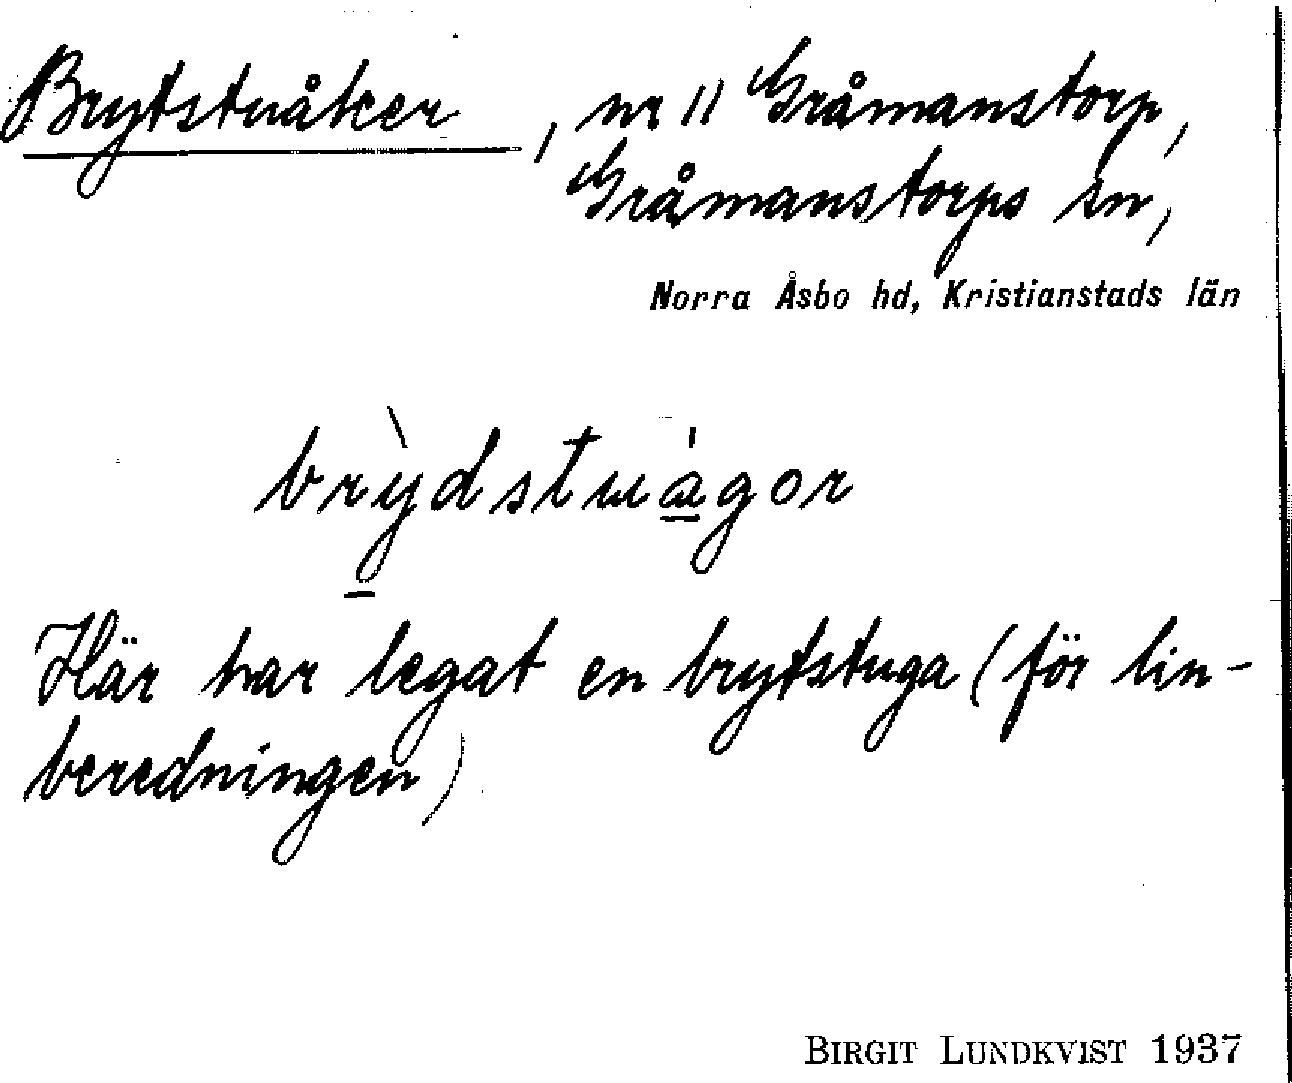 Brytstuåker, nr 11 Gråmanstorp,
Gråmanstorps sn,
Norra Åsbo hd, Kristianstads län
brỳdstuágor
Här har legat en brytstuga (för lin-
beredningen)
BIRGIT LUNDKVIST 1937